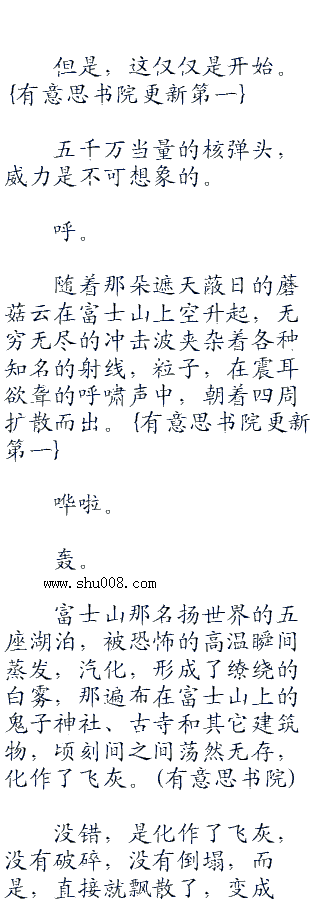 但是，这仅仅是开始。
{有意思书院更新第一}
五千万当量的核弹头，
威力是不可想象的。
呼。
随着那朵遮天蔽日的蘑
菇云在富士山上空升起，无
穷无尽的冲击波夹杂着各种
知名的射线，粒子，在震耳
欲聋的呼啸声中，朝着四周
扩散而出。{有意思书院更新
第一}
哗啦。
轰。
www.shu008.com
富士山那名扬世界的五
座湖泊，被恐怖的高温瞬间
蒸发，汽化，形成了缭绕的
白雾，那遍布在富士山上的
鬼子神社、古寺和其它建筑
物，顷刻间之间荡然无存，
化作了飞灰。(有意思书院)
没错，是化作了飞灰，
没有破碎，没有倒塌，而
是，直接就飘散了，变成